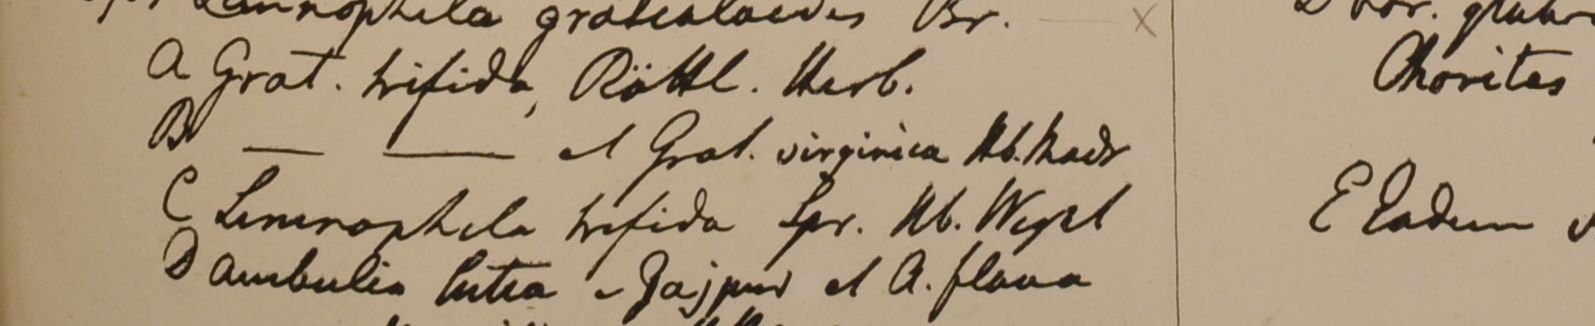 Limnophila gratioloides Br. — x
A Grat. trifida, Röttl. Herb.
B — — et Grat. virginica Hb. Madr
C Limnophila trifida Spr. Hb. Wight
D Ambulia lutea e Jajpur et A. flava
Eadem